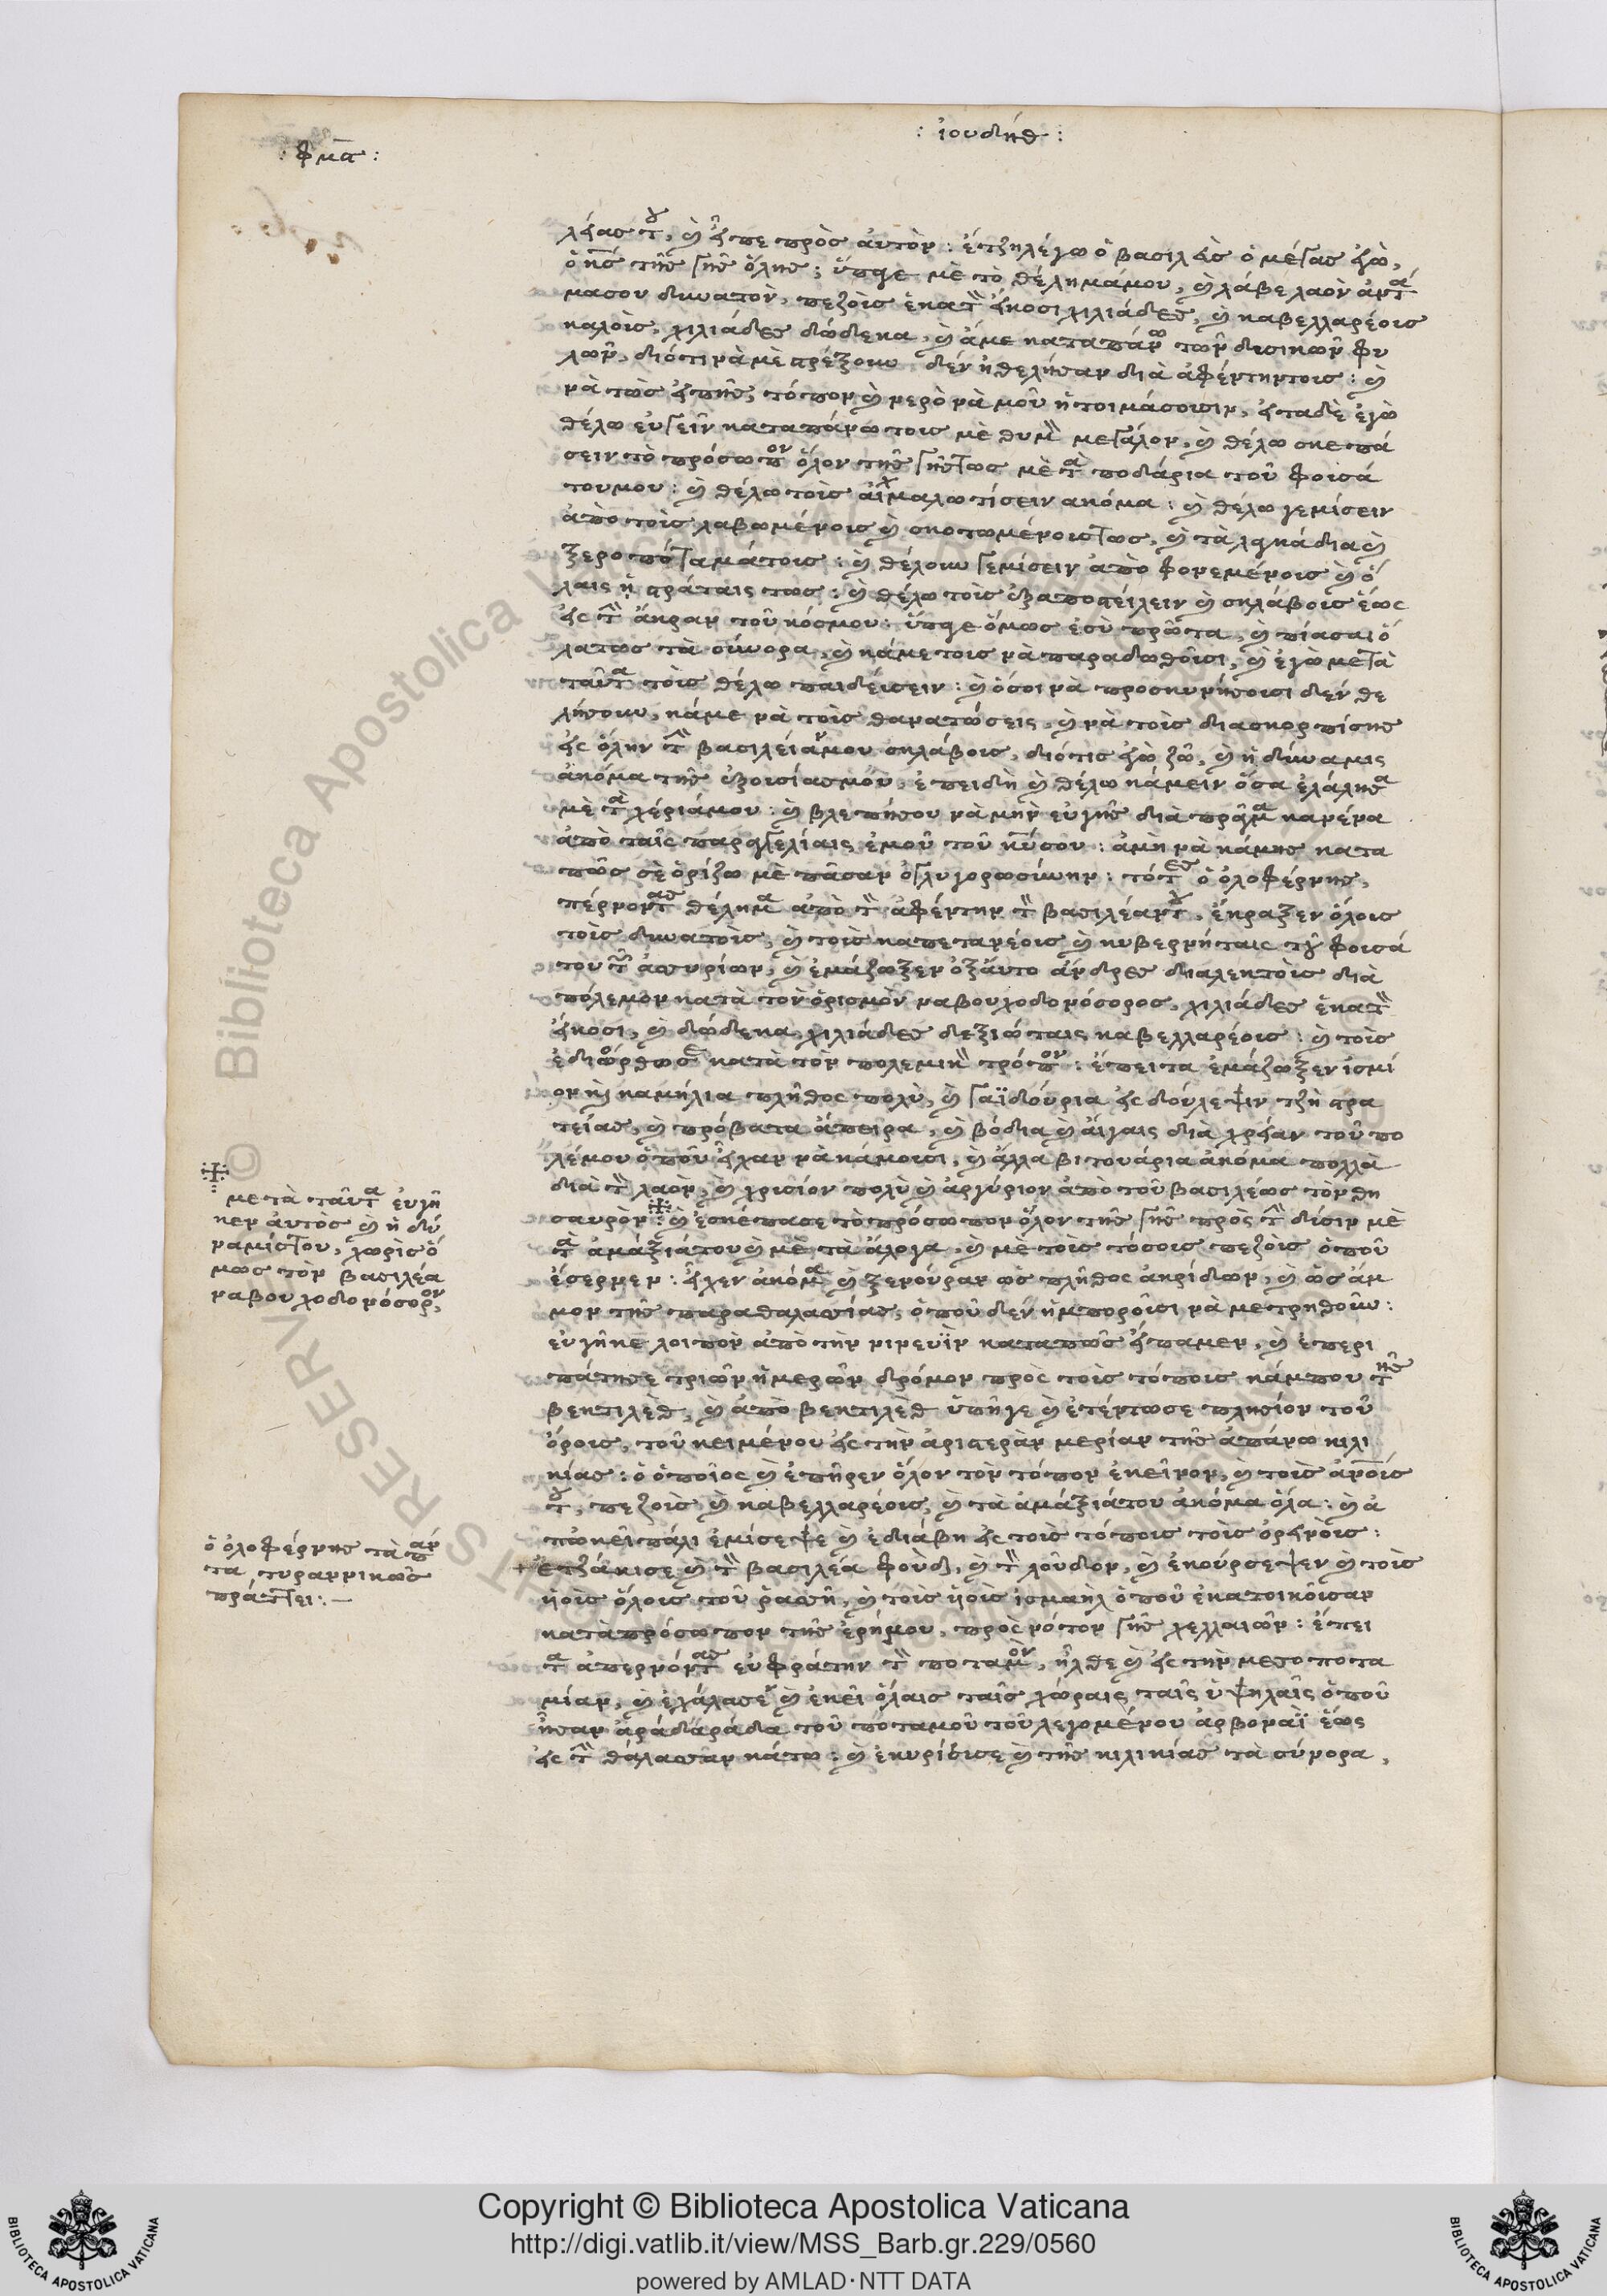 : ἰουδὴθ :
: φμα :
λέας τοῦ, καὶ εἶπε πρὸς αὐτὸν: ἔτζηλέγω ὁ βασιλεὺς ὁ μέγας ἐγὼ,
ὁ κύριος τῆς γῆς ὅλης; ὕπαγε μὲ τὸ θέλημάμου, καὶ λάβε λαὸν ἀντά
μασου δυνατὸν, πεζοὶς ἑκατὸν εἴκοσι χιλιάδες, καὶ καβελλαρέοις
καλοὶς, χιλιάδες δώδεκα, καὶ ἄμε καταπάνω τῶν δυσικῶν φυ
λῶν, διότι νὰ μὲ τρέξουν δὲν ἠθελήσαν διὰ ἀφέντηντοις: καὶ
νὰ τῶς εἰπῆς, τόπον καὶ νερὸ νὰ μοῦ ἡτοιμάσουσιν, εἰταδὲ ἐγὼ
θέλω εὐγεῖν καταπάνω τοις μὲ θυμὸν μεγάλον, καὶ θέλω σκεπά
σειν τὸ πρόσωπον ὅλον τῆς γῆςτως μὲ τὰ ποδάρια τοῦ φοισά
τουμου: καὶ θέλω τοὶς αἰχμαλωτίσειν ακόμα: καὶ θέλω γεμίσειν
ἀπὸ τοὶς λαβωμένοις καὶ σκοτωμένοιςτως, καὶ τὰ λακκάδια καὶ
ξεροπόταμάτοις: καὶ θέλουν γεμίσειν ἀπὸ φονεμένοις καὶ ὅ
λαις ἡ στράταις τως: καὶ θέλω τοὶς ἐξαποστείλειν καὶ σκλάβοις ἕως
εἰς τὴν ἄκραν τοῦ κόσμου: ὕπαγε ὅμως ἐσὺ πρῶτα, καὶ πίασαι ὅ
λατως τὰ σύνορα, καὶ κάμε τοις νὰ παραδωθοῦσι, καὶ ἐγὼ μετὰ
ταῦτα τοὶς θέλω παιδεύσειν: καὶ ὅσοι νὰ προσκυνήσουσι δὲν θε
λήσουν, κάμε νὰ τοὶς θανατώσεις, καὶ νὰ τοὶς διασκορπίσης
εἰς ὅλην τὴν βασιλείανμου σκλάβοις, διότις ἐγὼ ζῶ, καὶ ἡ δύναμις
ἀκόμα τῆς ἐξουσίαςμου, ἐπειδὴ καὶ θέλω κάμειν ὅσα ἐλάλησα
μὲ τὰ χέριάμου: καὶ βλεπήσου νὰ μὴν εὐγῆς διὰ πρᾶγμα κανένα
ἀπὸ ταῖς παραγγελίαις ἐμοῦ τοῦ κυρίουσου: ἀμὴ νὰ κάμης κατα
πῶς σὲ ὁρίζω μὲ πᾶσαν ὀγλυγοροσύνην: τότες ὁ ὁλοφέρνης,
πέρνοντας θέλημα ἀπὸ τὸν ἀφέντην τὸν βασιλέαντου, ἔκραξεν ὅλοις
τοὶς δυνατοὶς, καὶ τοὶς καπετανέοις καὶ κυβερνήταις τοῦ φοισά
του τῶν ἀσσυρίων, καὶ ἐμάζωξεν ὀξαύτο ἄνδρες διαλεκτοὶς διὰ
πόλεμον κατὰ τὸν ὁρισμὸν ναβουχοδονόσορος, χιλιάδες ἑκατὸν
εἴκοσι, καὶ δώδεκα χιλιάδες δεξιώταις καβελλαρέοις: καὶ τοὶς
ἐδιόρθωσε κατὰ τὸν πολεμικὸν τρόπον: ἔπειτα ἐμάζωξεν ἰσμί
ον καὶ καμήλια πλῆθος πολὺ, καὶ γαϊδούρια εἰς δούλεψιν τζὴ στρα
τείας, καὶ πρόβατα ἄπειρα, καὶ βόδια καὶ αἴγαις διὰ χρείαν τοῦ πο
λέμου ὁποῦ εἶχαν νὰ κάμουσι, καὶ ἄλλα βιτουάρια ἀκόμα πολλὰ
διὰ τὸν λαὸν, καὶ χρισίον πολὺ καὶ ἀργύριον ἀπὸ τοῦ βασιλέως τὸν θη
σαυρὸν: καὶ ἐσκέπασε τὸ πρόσωπον ὅλον τῆς γῆς πρὸς τὴν δύσιν μὲ
τὰ ἁμάξιάτου καὶ μὲ τὰ ἄλογα, καὶ μὲ τοὶς τόσοις πεζοὶς ὁποῦ
ἔσερνεν: εἶχεν ἀκόμα καὶ ξενούραν ὡς πλῆθος ἀκρίδων, καὶ ὡς ἄμ
μον τῆς παραθαλασσίας, ὁποῦ δὲν ἠμποροῦσι νὰ μετρηθοῦν:
εὐγῆκε λοιπὸν ἀπὸ τὴν νινευῒν καταπῶς εἴπαμεν, καὶ ἐπερι
πάτησε τριῶν ἡμερῶν δρόμον πρὸς τοὶς τόποις κάμπου τῆς
βεκτιλὲθ, καὶ ἀπὸ βεκτιλὲθ ὑπῆγε καὶ ἐτέντωσε πλησίον τοῦ
ὄροις, τοῦ κειμένου εἰς τὴν ἀριστερὰν μερίαν τῆς ἀπάνω κιλι
κίας: ὁ ὁποῖος καὶ ἐπῆρεν ὅλον τὸν τόπον ἐκεῖνον, καὶ τοὶς ἀνθρώποις
τοῦ, πεζοὶς καὶ καβελλαρέοις, καὶ τὰ ἁμάξιάτου ἀκόμα ὅλα: καὶ ἀ
πῶκεῖ πάλι ἐμίσεψε καὶ ἐδιάβη εἰς τοὶς τόποις τοὶς ὀρεινοὶς:
+ Ἐτζάκισε καὶ τὸν βασιλέα φοὺδ, καὶ τὸν λοῦδον, καὶ ἐκούρσεψεν καὶ τοὶς
ὑοὶς ὅλοις τοῦ ῥασσῆ, καὶ τοὶς ὑοὶς ἰσμαὴλ ὁποῦ ἐκατοικοῦσαν
κατὰπρόσωπον τῆς ἐρήμου, πρὸς νότον γῆς χελλαιῶν: ἔπει
τα ἀπερνόντας εὐφράτην τὸν ποταμὸν, ἦλθε καὶ εἰς τὴν μεσοποτα
μίαν, καὶ ἐχάλασε καὶ ἐκεῖ ὅλαις ταῖς χώραις ταῖς ὑψηλαῖς ὁποῦ
ἦσαν ἀράδαράδα τοῦ ποταμοῦ τοῦ λεγομένου ἀρβοναῒ ἕως
εἰς τὴν θάλασσαν κάτω: καὶ ἐκυρίευσε καὶ τῆς κιλικίας τὰ σύνορα,
μετὰ ταῦτα ἐυγῆ
κεν ἀυτὸς καὶ ἡ δύ
ναμίςτου, χωρὶς ὅ
μως τὸν βασιλέα
ναβουχοδονόσορον,
ὁ ὁλοφέρνης τὰ πάν
τα τυραννικῶς
πράττει: –
Copyright © Biblioteca Apostolica Vaticana
http://digi.vatlib.it/view/MSS_Barb.gr.229/0560
powered by AMLAD·NTT DATA